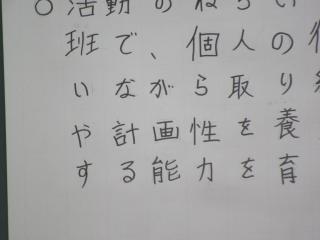 ○活動のねらい
班で、個人の
いながら取り
や計画性を養
する能力を育